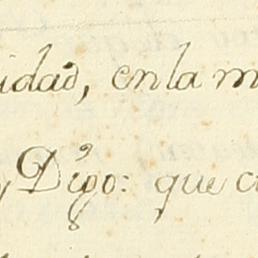 idad, en la m
y Digo: que c